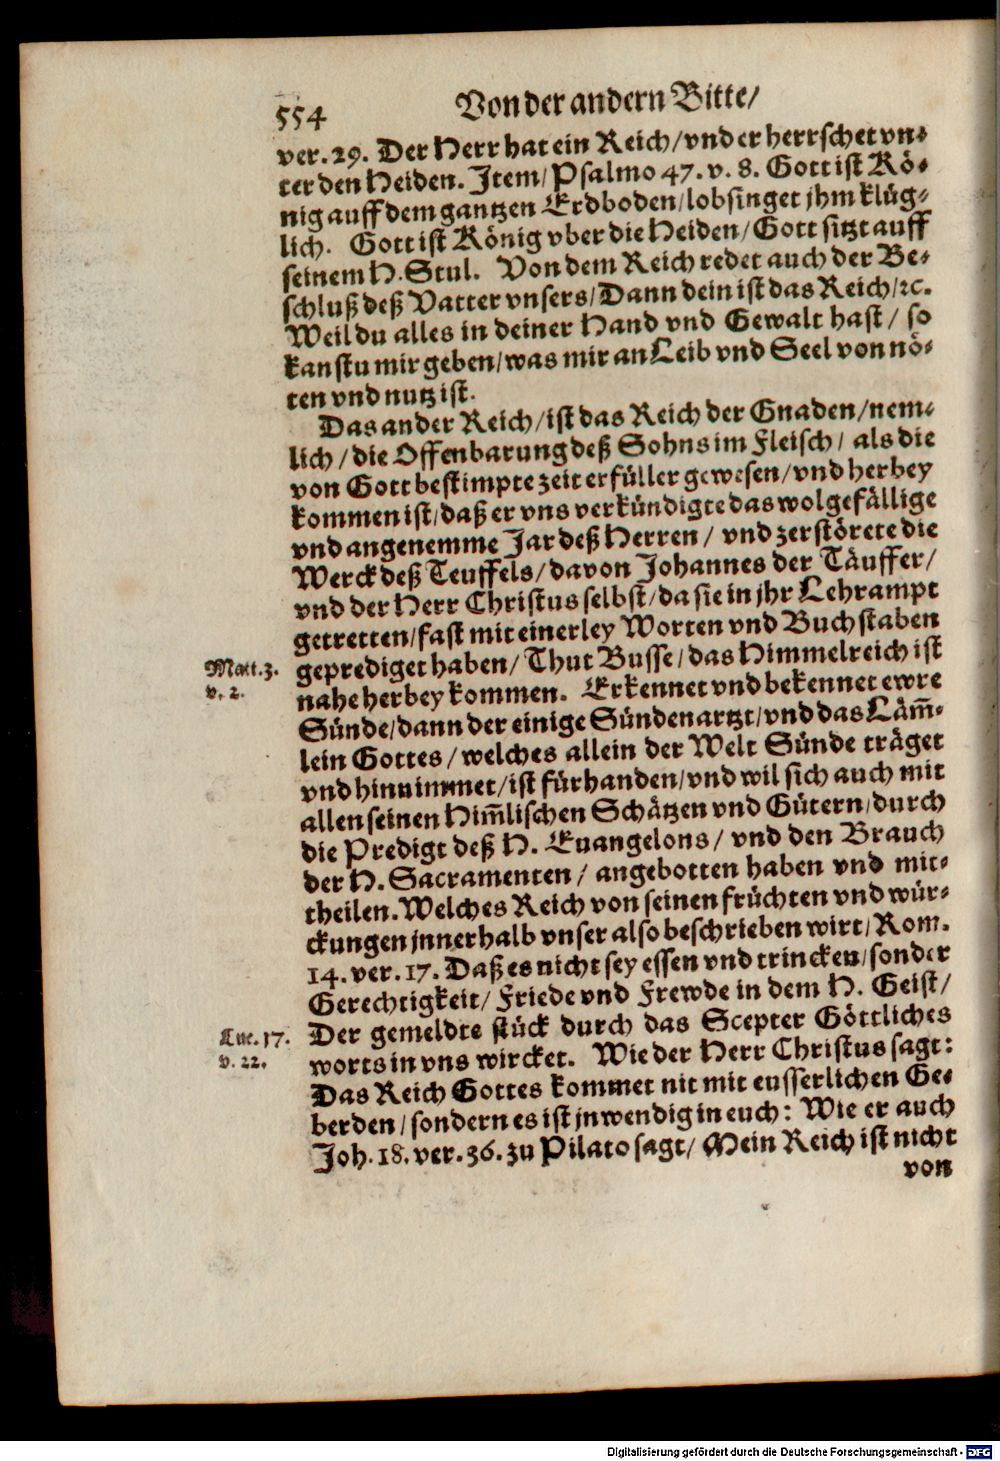 554 Von der andern Bitte/
ver. 29. Der Herr hat ein Reich/vnd er herrschet vn⸗
ter den Heiden. Item/Psalmo 47. v. 8. Gott ist Kö⸗
nig auff dem gantzen Erdboden/lobsinget jhm klüg⸗
lich. Gott ist König vber die Heiden/Gott sitzt auff
seinem H. Stul. Von dem Reich redet auch der Be⸗
schluß deß Vatter vnsers/Dann dein ist das Reich/ꝛc.
Weil du alles in deiner Hand vnd Gewalt hast/ so
kanstu mir geben/was mir an Leib vnd Seel von nö⸗
ten vnd nutz ist.
Das ander Reich/ist das Reich der Gnaden/nem⸗
lich/die Offenbarung deß Sohns im Fleisch/ als die
von Gott bestimpte zeit erfüller gewesen/vnd herbey
kommen ist/daß er vns verkündigte das wolgefällige
vnd angenemme Jar deß Herren/ vnd zerstörete die
Werck deß Teuffels/davon Johannes der Täuffer/
vnd der Herr Christus selbst/da sie in jhr Lehrampt
getretten/fast mit einerley Worten vnd Buchstaben
Matt. 3. geprediget haben/Thut Busse/das Himmelreich ist
v. 2. nahe herbey kommen. Erkennet vnd bekennet ewre
Sünde/dann der einige Sündenartzt/vnd das Läm̃⸗
lein Gottes/welches allein der Welt Sünde träget
vnd hinnimmet/ist fürhanden/vnd wil sich auch mit
allen seinen Him̃lischen Schätzen vnd Gütern/durch
die Predigt deß H. Euangelons/ vnd den Brauch
der H. Sacramenten/ angebotten haben vnd mit⸗
theilen. Welches Reich von seinen früchten vnd wür⸗
ckungen jnnerhalb vnser also beschrieben wirt/Rom.
14. ver. 17. Daß es nicht sey essen vnd trincken/sonder
Gerechtigkeit/ Friede vnd Frewde in dem H. Geist/
Luc. 17. Der gemeldte stück durch das Scepter Göttliches
v. 22. worts in vns wircket. Wie der Herr Christus sagt:
Das Reich Gottes kommet nit mit eusserlichen Ge⸗
berden/sondern es ist jnwendig in euch: Wie er auch
Joh. 18. ver. 36. zu Pilato sagt/Mein Reich ist nicht
von
Digitalisierung gefördert durch die Deutsche Forschungsgemeinschaft - DFG